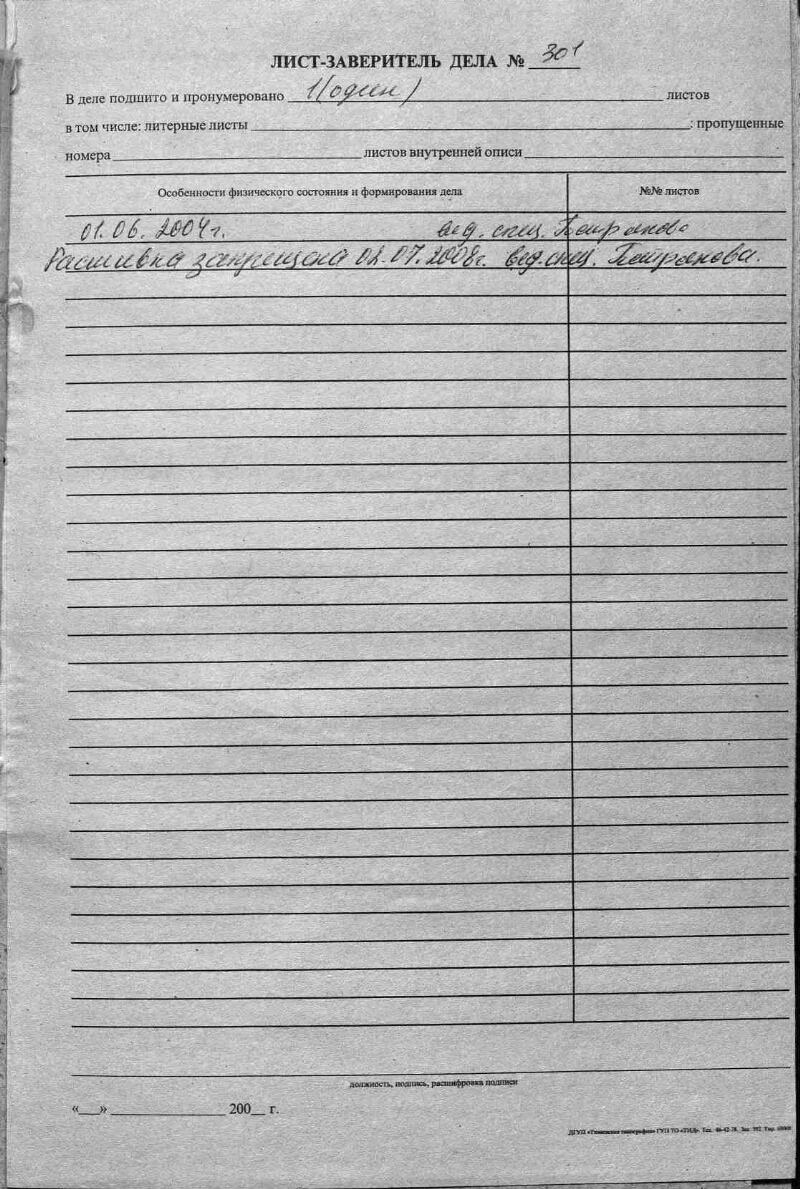 ЛИСТ-ЗАВЕРИТЕЛЬ ДЕЛА № 301
В деле подшито и пронумеровано 1 (один) листов
в том числе: литерные листы ; пропущенные
номера листов внутренней описи
Особенности физического состояния и формирования дела №№ листов
01.06.2004г. вед. спец.
Расшивка запрещена 02.07.2008г. вед. спец.
должность, подпись, расшифровка подписи
«__» 200__ г.